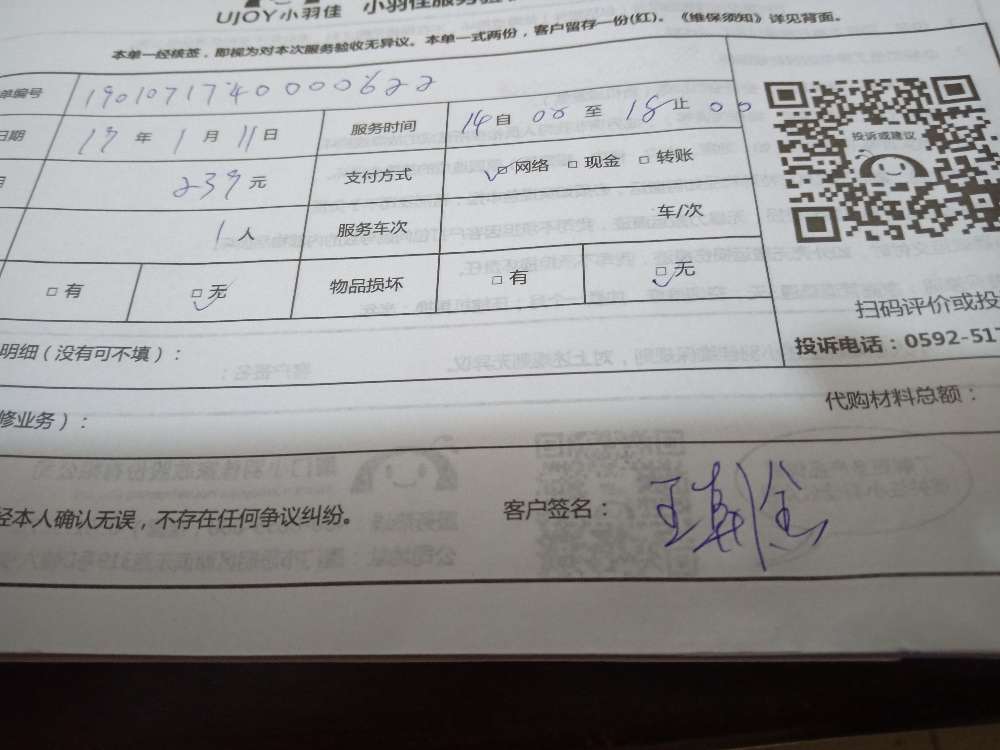 UJOY小羽佳 小羽佳服务验
本单一经核签，即视为对本次服务验收无异议。本单一式两份，客户留存一份(红)。《维保须知》详见背面。
单编号 190107174000062​2
日期 19 年 1 月 11 日 服务时间 14 自 00 至 18 止 00
239 元 支付方式 ☑网络 □现金 □转账
1 人 服务车次 车/次
□有 ☑无 物品损坏 □有 ☑无
投诉或建议
扫码评价或投
投诉电话：0592-517
明细（没有可不填）：
代购材料总额：
修业务）：
经本人确认无误，不存在任何争议纠纷。
客户签名：